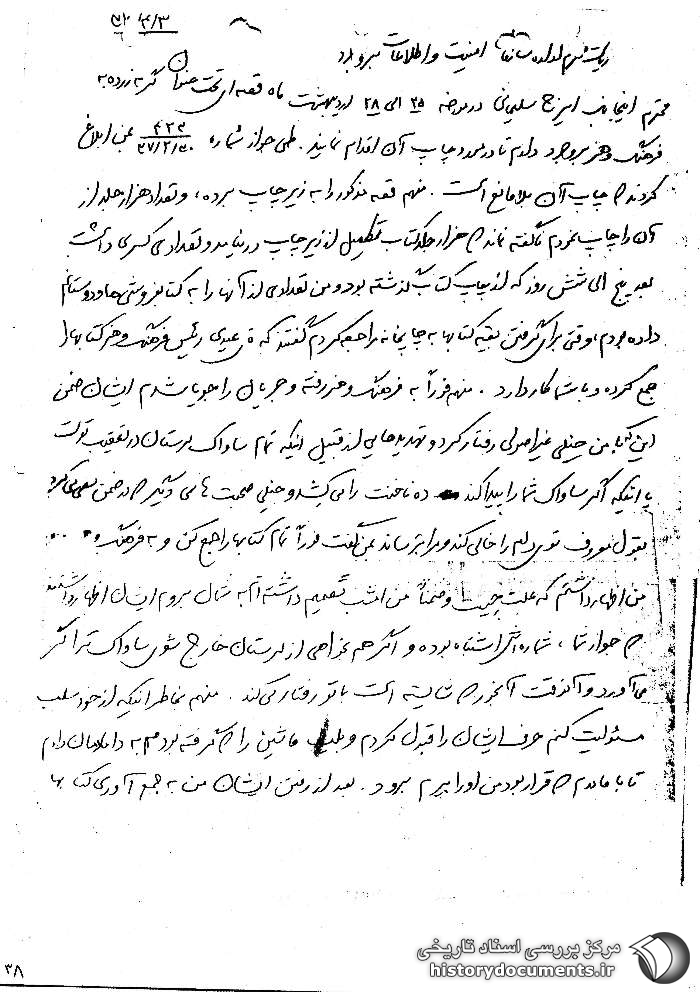 ۴/۳
ریاست محترم اداره سازمان امنیت و اطلاعات بروجرد
محترم اینجانب ایرج سلیمانی در مورخه ۲۵ الی ۲۸ اردیبهشت ماه قصه ای تحت عنوان گربه زرده به
فرهنگ و هنر بروجرد دادم تا در مورد چاپ آن اقدام نمایند. طی جواز شماره ۴۲۳ ۳۷/۲/۳۰ بمن ابلاغ
کردند که چاپ آن بلامانع است. منهم قصه مذکور را به زیر چاپ برده، و تعداد هزار جلد از
آن را چاپ نمودم ناگفته نماند که هزار جلد کتاب تکمیل از زیر چاپ در نیامد و تعدادی کسری داشت
بعد پنج الی شش روز که از چاپ کتاب گذشته بود و من تعدادی از آنها را به کتابفروشی ها و دوستانم
داده بودم، وقتی برای گرفتن بقیه کتابها به چاپخانه مراجعه کردم گفتند که عبیدی رئیس فرهنگ و هنر کتابها را
جمع کرده و با شما کار دارد. منهم فوراً به فرهنگ و هنر رفته و جریان را جویا شدم ایشان ضمن
این که با من خیلی غیر اصولی رفتار کرد و تهدیدهایی از قبیل اینکه تمام ساواک لرستان در تعقیب توست
یا اینکه اگر ساواک شما را پیدا کند ده ناخنت را می کشد و خیلی صحبت های دیگر که در ضمن سعی می کرد
بقول معروف توی دلم را خالی کند و مرا بترساند بمن گفت فوراً تمام کتابها را جمع کن و به فرهنگ و ...
من اظهار داشتم که علت چیست و ضمناً من امشب تصمیم داشته ام به شمال بروم ایشان اظهار داشتند
که جواز شما، شماره اش اشتباه بوده و اگر هم بخواهی از لرستان خارج شوی ساواک ترا اگر
می آورد و آنوقت آنجور که شایسته است با تو رفتار می کند. منهم بخاطر اینکه از خود سلب
مسئولیت کنم حرف ایشان را قبول کردم و بلیط ماشین را که گرفته بودم به دادم
تا با مادرم که قرار بود من او را ببرم برود. بعد از رفتن ایشان من به جمع آوری کتابها
۳۸
مرکز بررسی اسناد تاریخی
historydocuments.ir